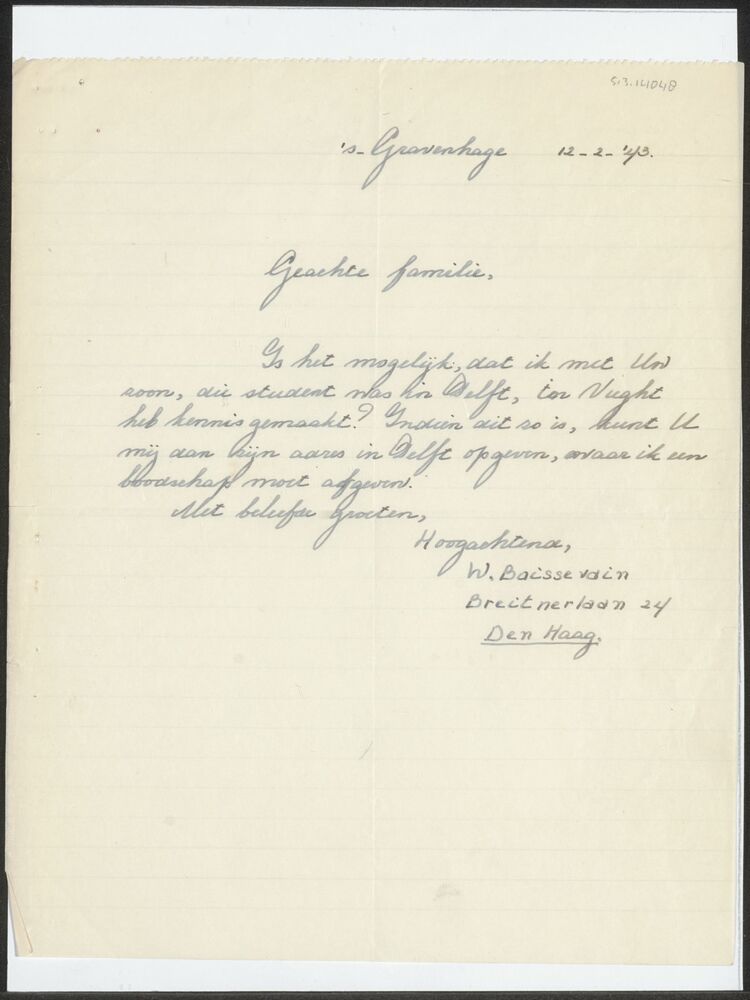 S.3.14048
's-Gravenhage 12-2-'43.
Geachte familie,
Is het mogelijk, dat ik met Uw
zoon, die student was in Delft, in Vught
heb kennis gemaakt? Indien dit zo is, kunt U
mij dan zijn adres in Delft opgeven, waar ik een
boodschap moet afgeven.
Met beleefde groeten,
Hoogachtend,
W. Boissevain
Breitnerlaan 24
Den Haag.